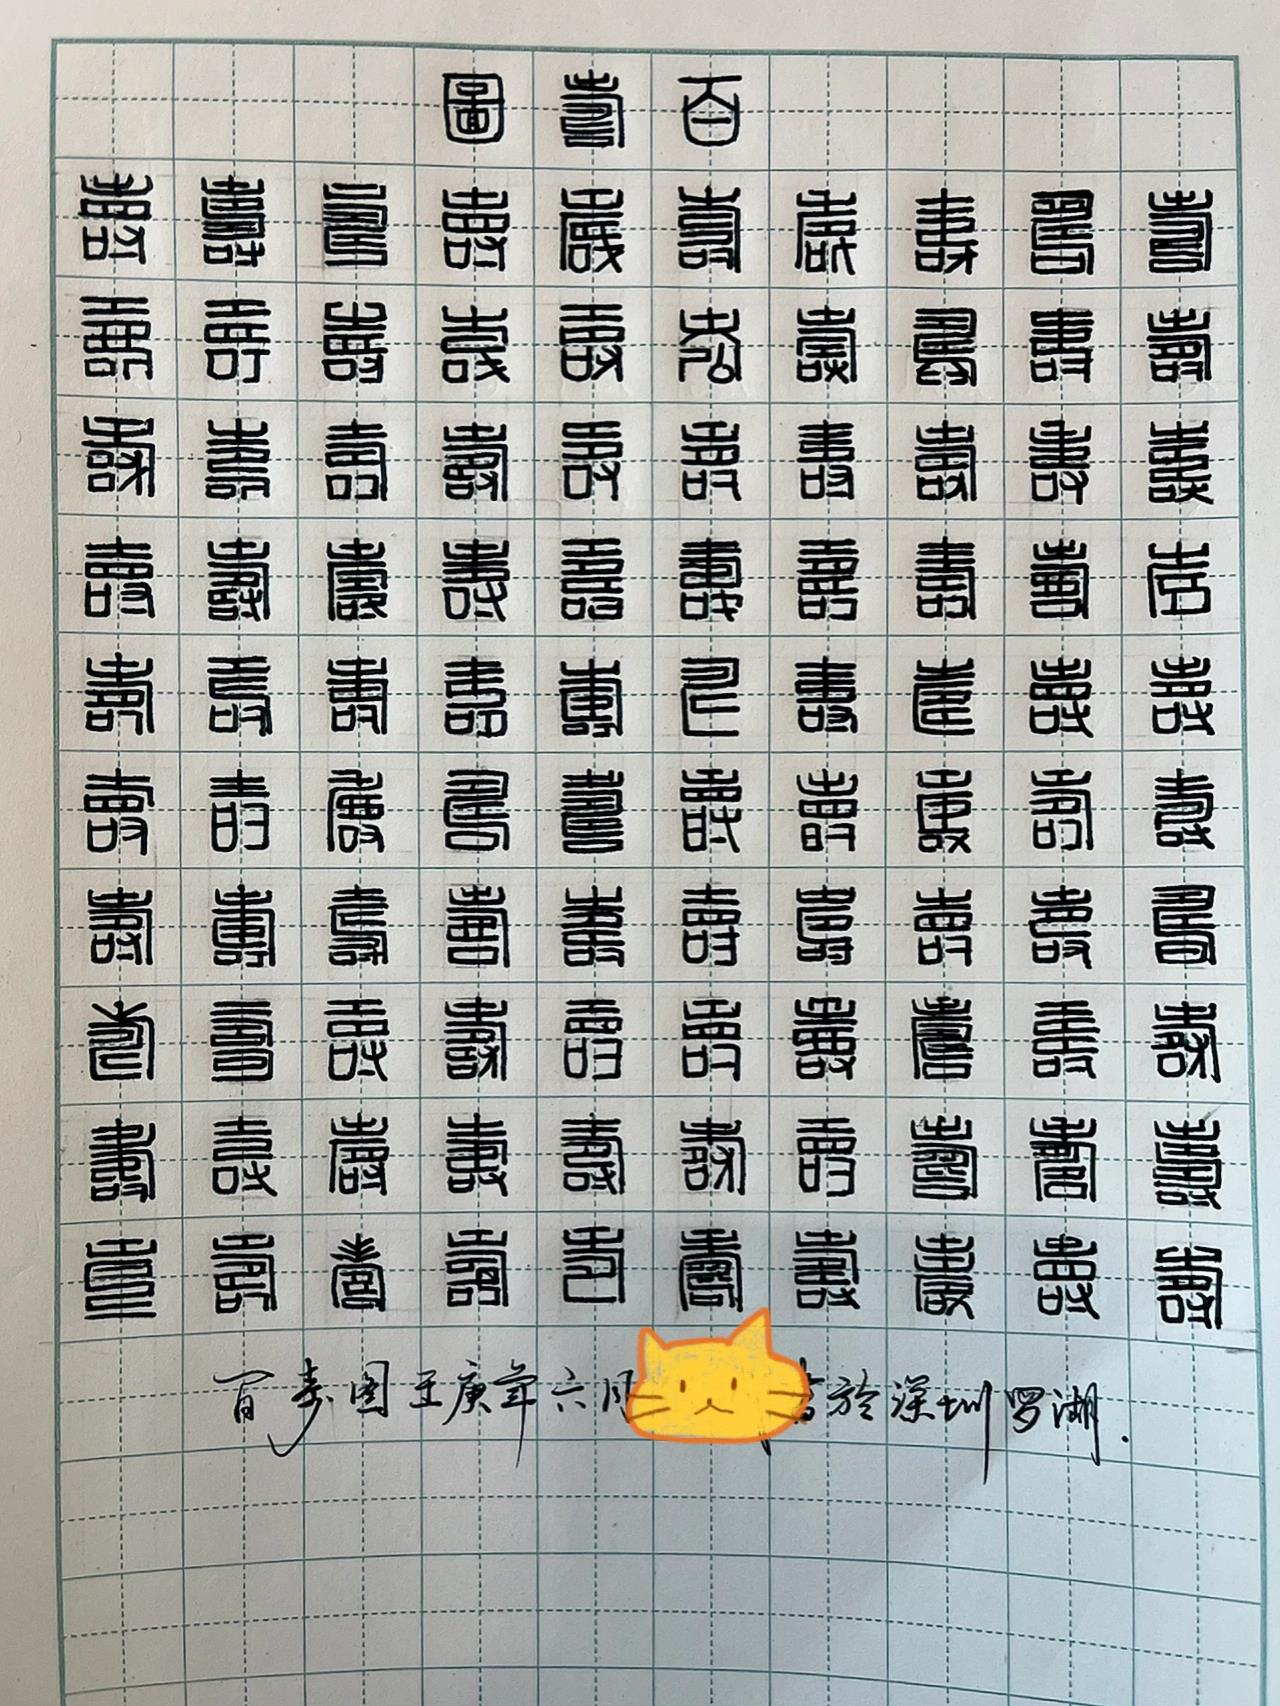 百壽圖
壽壽壽壽壽壽壽壽壽壽
壽壽壽壽壽壽壽壽壽壽
壽壽壽壽壽壽壽壽壽壽
壽壽壽壽壽壽壽壽壽壽
壽壽壽壽壽壽壽壽壽壽
壽壽壽壽壽壽壽壽壽壽
壽壽壽壽壽壽壽壽壽壽
壽壽壽壽壽壽壽壽壽壽
壽壽壽壽壽壽壽壽壽壽
壽壽壽壽壽壽壽壽壽壽
百寿图庚年六月於深圳罗湖.